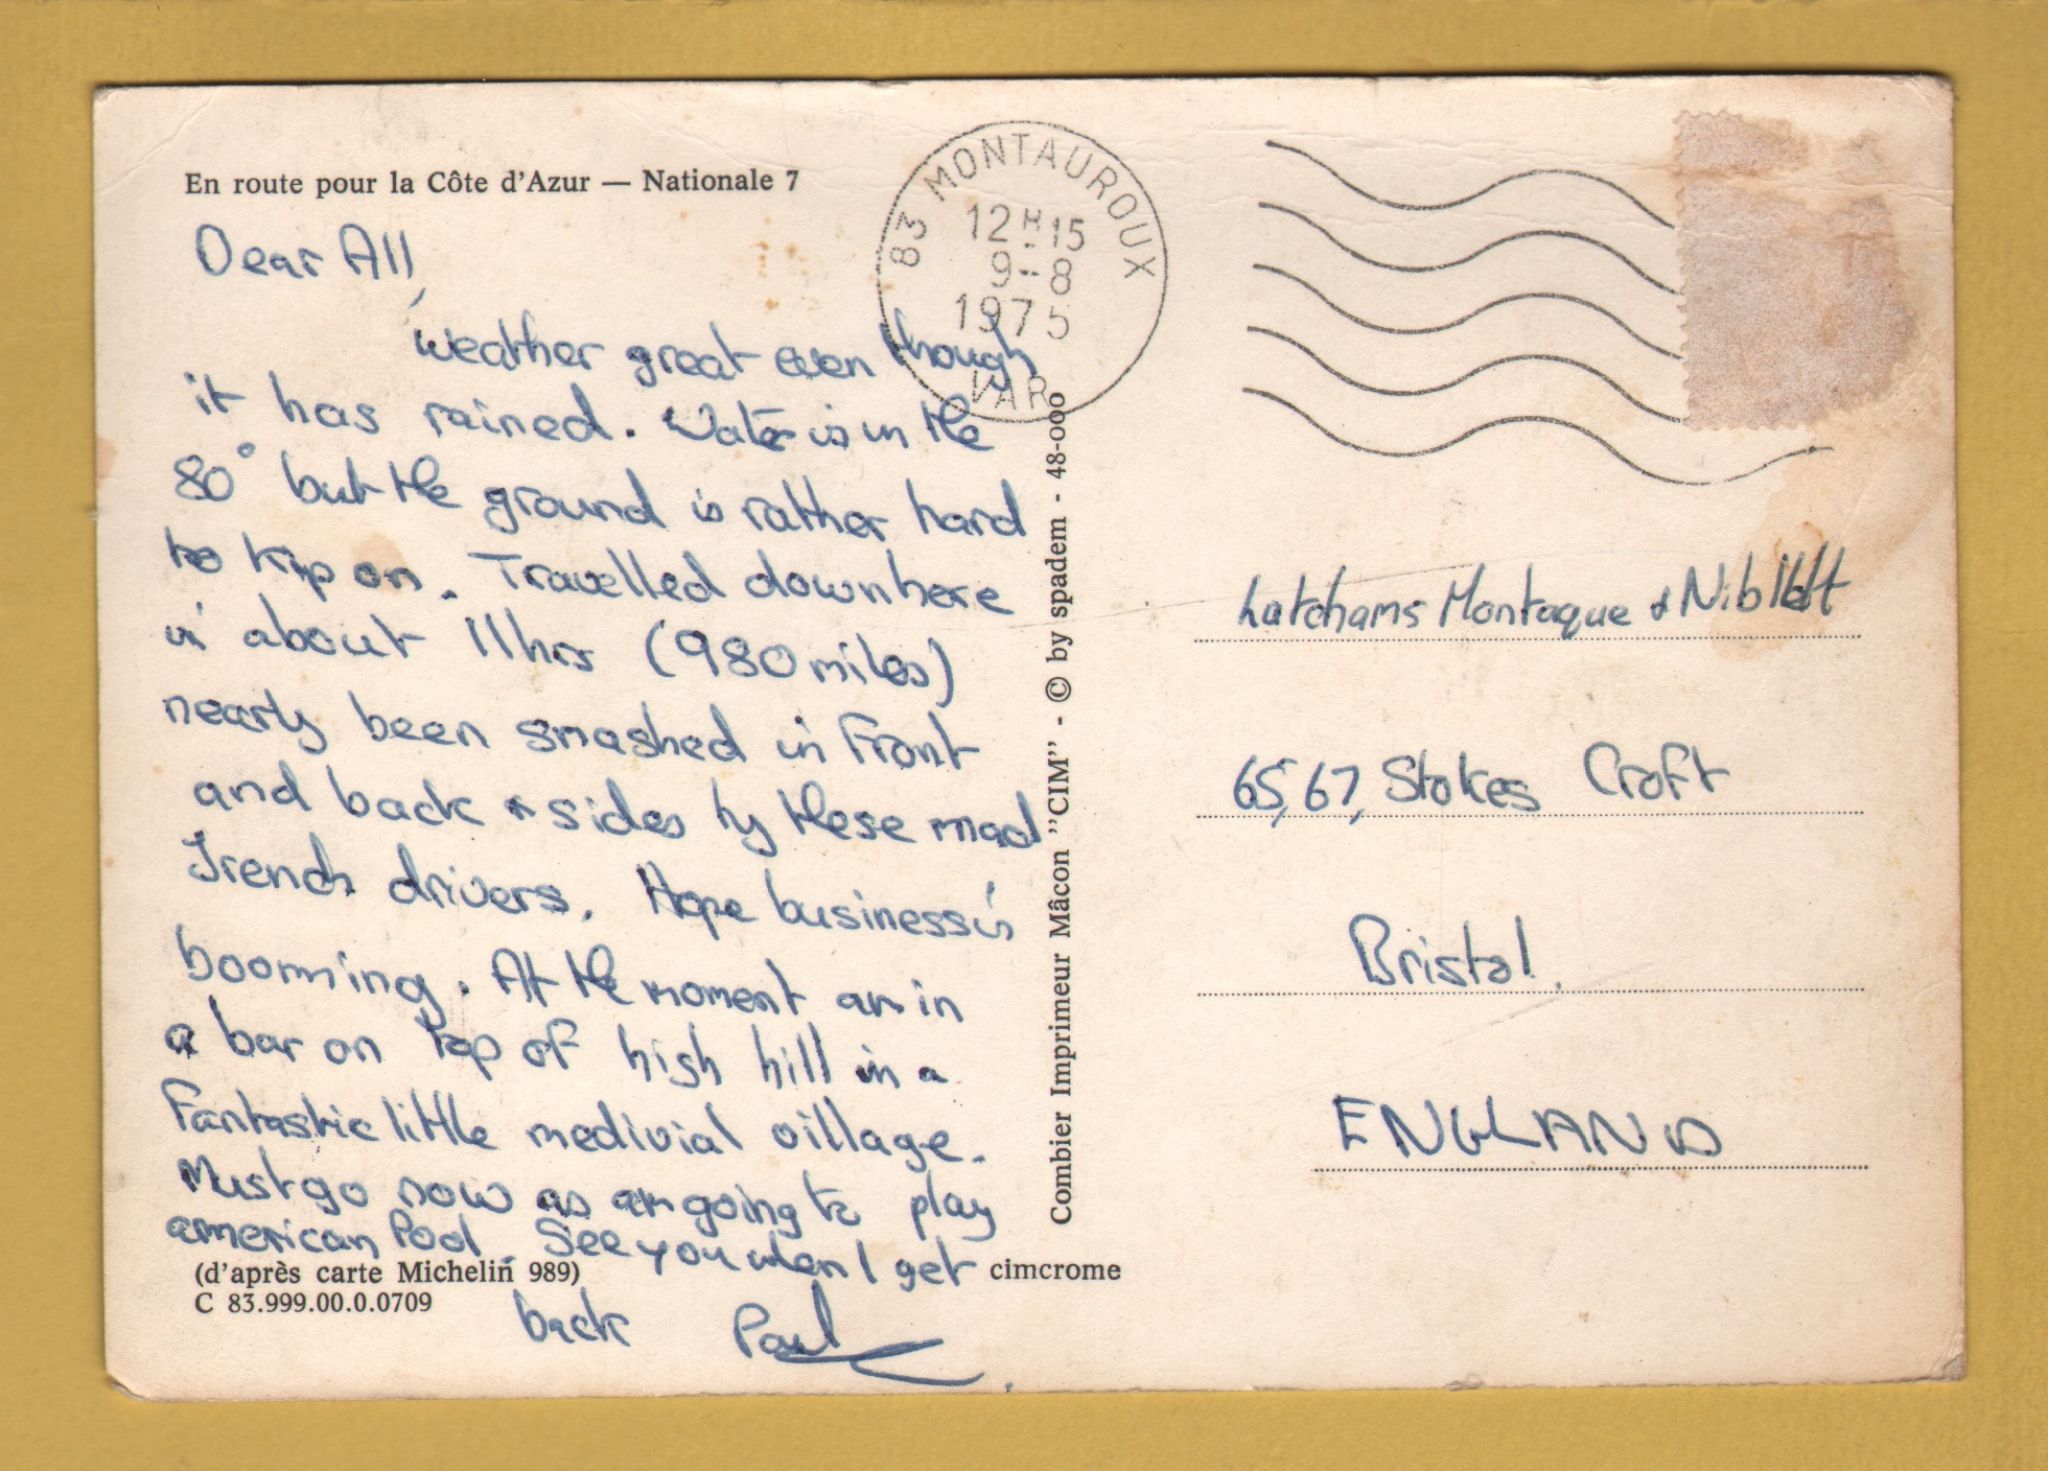 En route pour la Côte d'Azur — Nationale 7
Dear All,
weather great even though
it has rained. Water is in the
80° but the ground is rather hard
to kip on. Travelled down here
in about 11hrs (980 miles)
nearly been smashed in front
and back + sides by these mad
French drivers. Hope business is
booming. At the moment am in
a bar on top of high hill in a
Fantastic little medivial village.
Must go now as am going to play
american Pool. See you when I get
back Paul
(d'après carte Michelin 989)
C 83.999.00.0.0709
cimcrome
Combier Imprimeur Mâcon "CIM" - © by spadem - 48-000
83 MONTAUROUX
12H15
9-8
1975
VAR
Latchams Montague & Niblett
65,67, Stokes Croft
Bristol.
ENGLAND